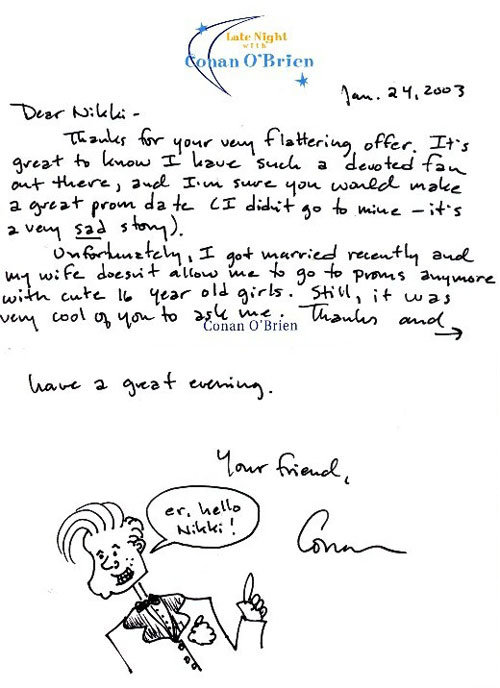 Late Night
with
Conan O'Brien
Jan. 24, 2003
Dear Nikki -
Thanks for your very flattering offer. It's
great to know I have such a devoted fan
out there, and I'm sure you would make
a great prom date (I didn't go to mine - it's
a very sad story).
Unfortunately, I got married recently and
my wife doesn't allow me to go to proms anymore
with cute 16 year old girls. Still, it was
very cool of you to ask me. Thanks and →
Conan O'Brien
have a great evening.
Your friend,
Conan
er, hello
Nikki!